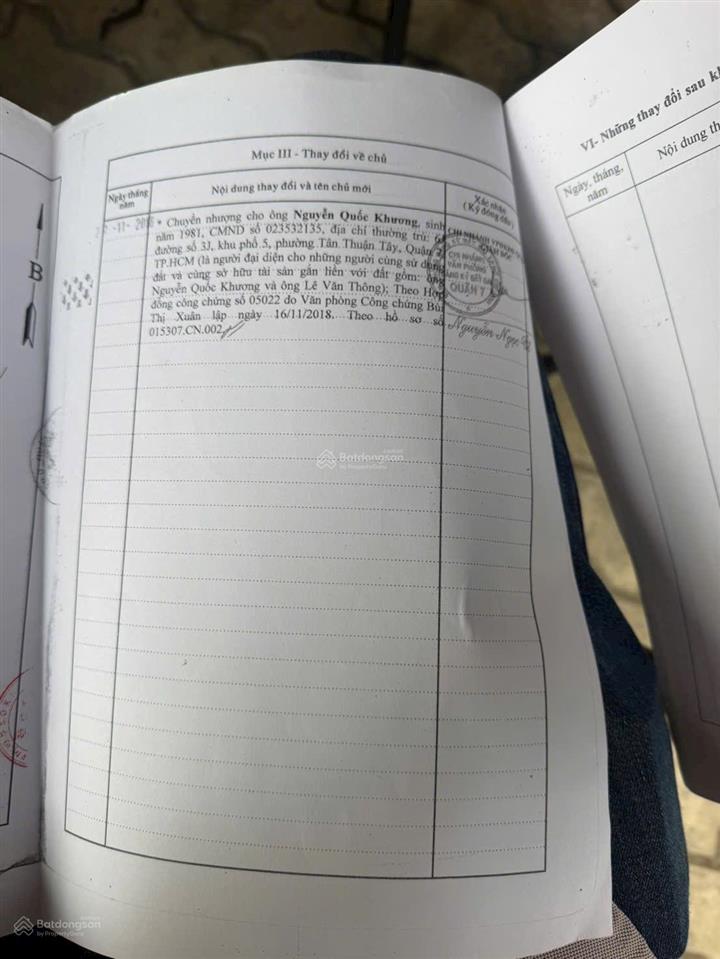 Mục III - Thay đổi về chủ
Ngày tháng năm
Nội dung thay đổi và tên chủ mới
Xác nhận
(Ký đóng dấu)
-11- 201
* Chuyển nhượng cho ông Nguyễn Quốc Khương, sinh
năm 1981, CMND số 023532135, địa chỉ thường trú:
đường số 3J, khu phố 5, phường Tân Thuận Tây, Quận
TP.HCM (là người đại diện cho những người cùng sử dụng
đất và cùng sở hữu tài sản gắn liền với đất gồm: ông
Nguyễn Quốc Khương và ông Lê Văn Thông); Theo Hợp
đồng công chứng số 05022 do Văn phòng Công chứng Bùi
Thị Xuân lập ngày 16/11/2018. Theo hồ sơ số
015307.CN.002
CHI NHÁNH
VĂN PHÒNG
ĐĂNG KÝ ĐẤT ĐAI
QUẬN 7
Nguyễn Ngọc
VI- Những thay đổi sau
Ngày, tháng, năm
Nội dung
B
Batdongsan
by PropertyGuru
Batdongsan
by PropertyGuru